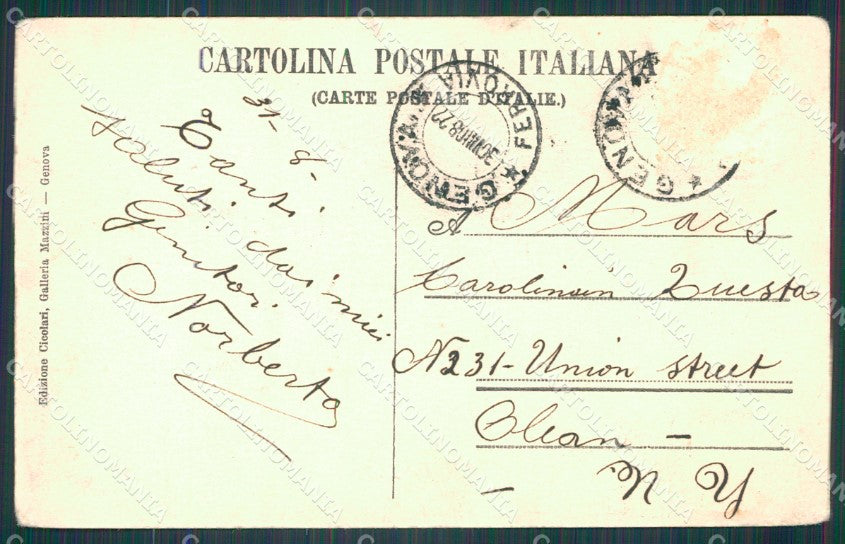 CARTOLINA POSTALE ITALIANA
(CARTE POSTALE D'ITALIE.)
31-8-
Tanti
saluti dai miei
Genitori
Norberto
GENOVA
FERROVIA
GENOVA
A Mars
Carolinsin Zuesta
N 231 - Union street
Olean -
N Y
Edizione Cicolari, Galleria Mazzini — Genova
CARTOLINOMANIA